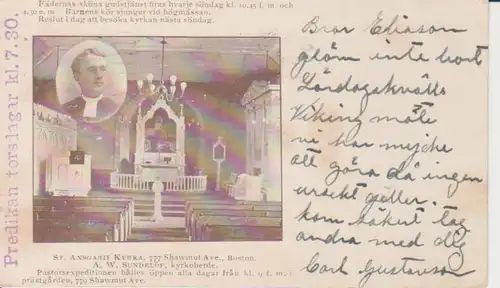 Fädernas sköna gudstjänst firas hvarje söndag kl. 10.45 f. m. och
4.30 e. m. Barnens kör sjunger vid högmässan.
Beslut i dag att besöka kyrkan nästa söndag.
Predikan torsdagar kl. 7.30.
St. Ansgarii Kyrka, 777 Shawmut Ave., Boston.
A. W. Sundelöf, kyrkoherde.
Pastorsexpeditionen hålles öppen alla dagar från kl. 9 f. m. i
prästgården, 779 Shawmut Ave.
Bror Eliason
glöm inte bort
Lördagskvälls
Viking möte
vi har mycke
att göra då ingen
ursekt gäller.
kom säkert tag
andra med dig
Carl Gustavson